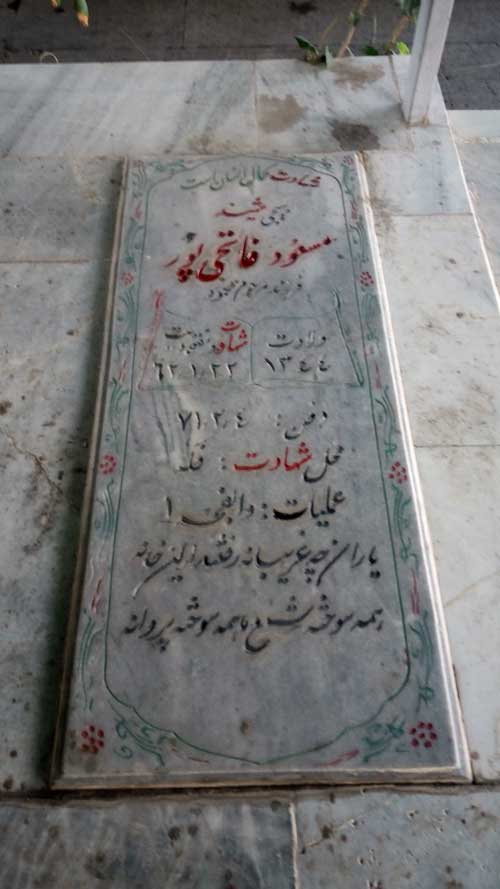 شهادت کمال انسان است
بسیجی شهید
مسعود فاتحی پور
فرزند مرحوم محمود
ولادت ۱۳۴۴
شهادت و مفقودیت ۶۲/۱/۲۲
دفن : ۷۱/۲/۴
محل شهادت : فکه
عملیات : والفجر ۱
یاران چه غریبانه رفتند از این خانه
همه سوخته شمع ما همه سوخته پروانه